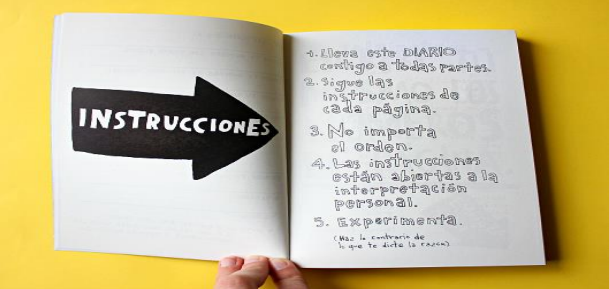 INSTRUCCIONES
1. Lleva este DIARIO
contigo a todas partes.
2. Sigue las
instrucciones de
cada página.
3. No importa
el orden.
4. Las instrucciones
están abiertas a la
interpretación
personal.
5. Experimenta.
(Haz lo contrario de
lo que te dicta la razón)